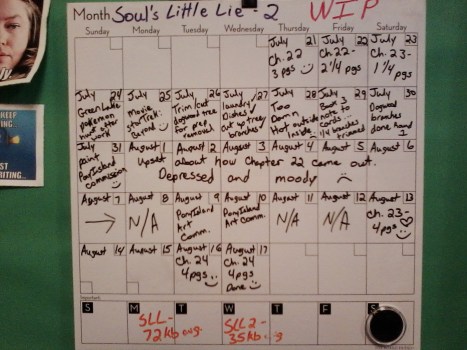 Month Soul's Little Lie - 2 WIP
Sunday Monday Tuesday Wednesday Thursday Friday Saturday
July 21
Ch. 22
3 pgs
July 22
Ch. 22-
2 1/4 pgs
July 23
Ch. 23-
1 1/4 pgs
July 24
Green Lake
Pokemon
walk after
work
July 25
Movie
Star Trek:
Beyond
July 26
Trim/cut
dogwood tree
for prep
removal
July 27
laundry/
Dishes/
cut up tree/
branches
July 28
Too
Damn
Hot outside
July 29
Book 3
note to
cards-
1/4 branches
trimmed
July 30
Dogwood
branches
done Round
1
July 31
Paint
Pony Island
commission
August 1
August 2
August 3
August 4
August 5
August 6
Upset about how Chapter 22 came out.
Depressed and moody
August 7
August 8
N/A
August 9
Pony Island
Art
Comm.
August 10
Pony Island
Art Comm.
August 11
N/A
August 12
N/A
August 13
Ch. 23-
4 pgs
August 14
August 15
August 16
Ch. 24
4 pgs
August 17
Ch. 24
4 pgs
Done
S M T W T F S
SLL-
72kb
SLL2-
35kb
KEEP
WAITING